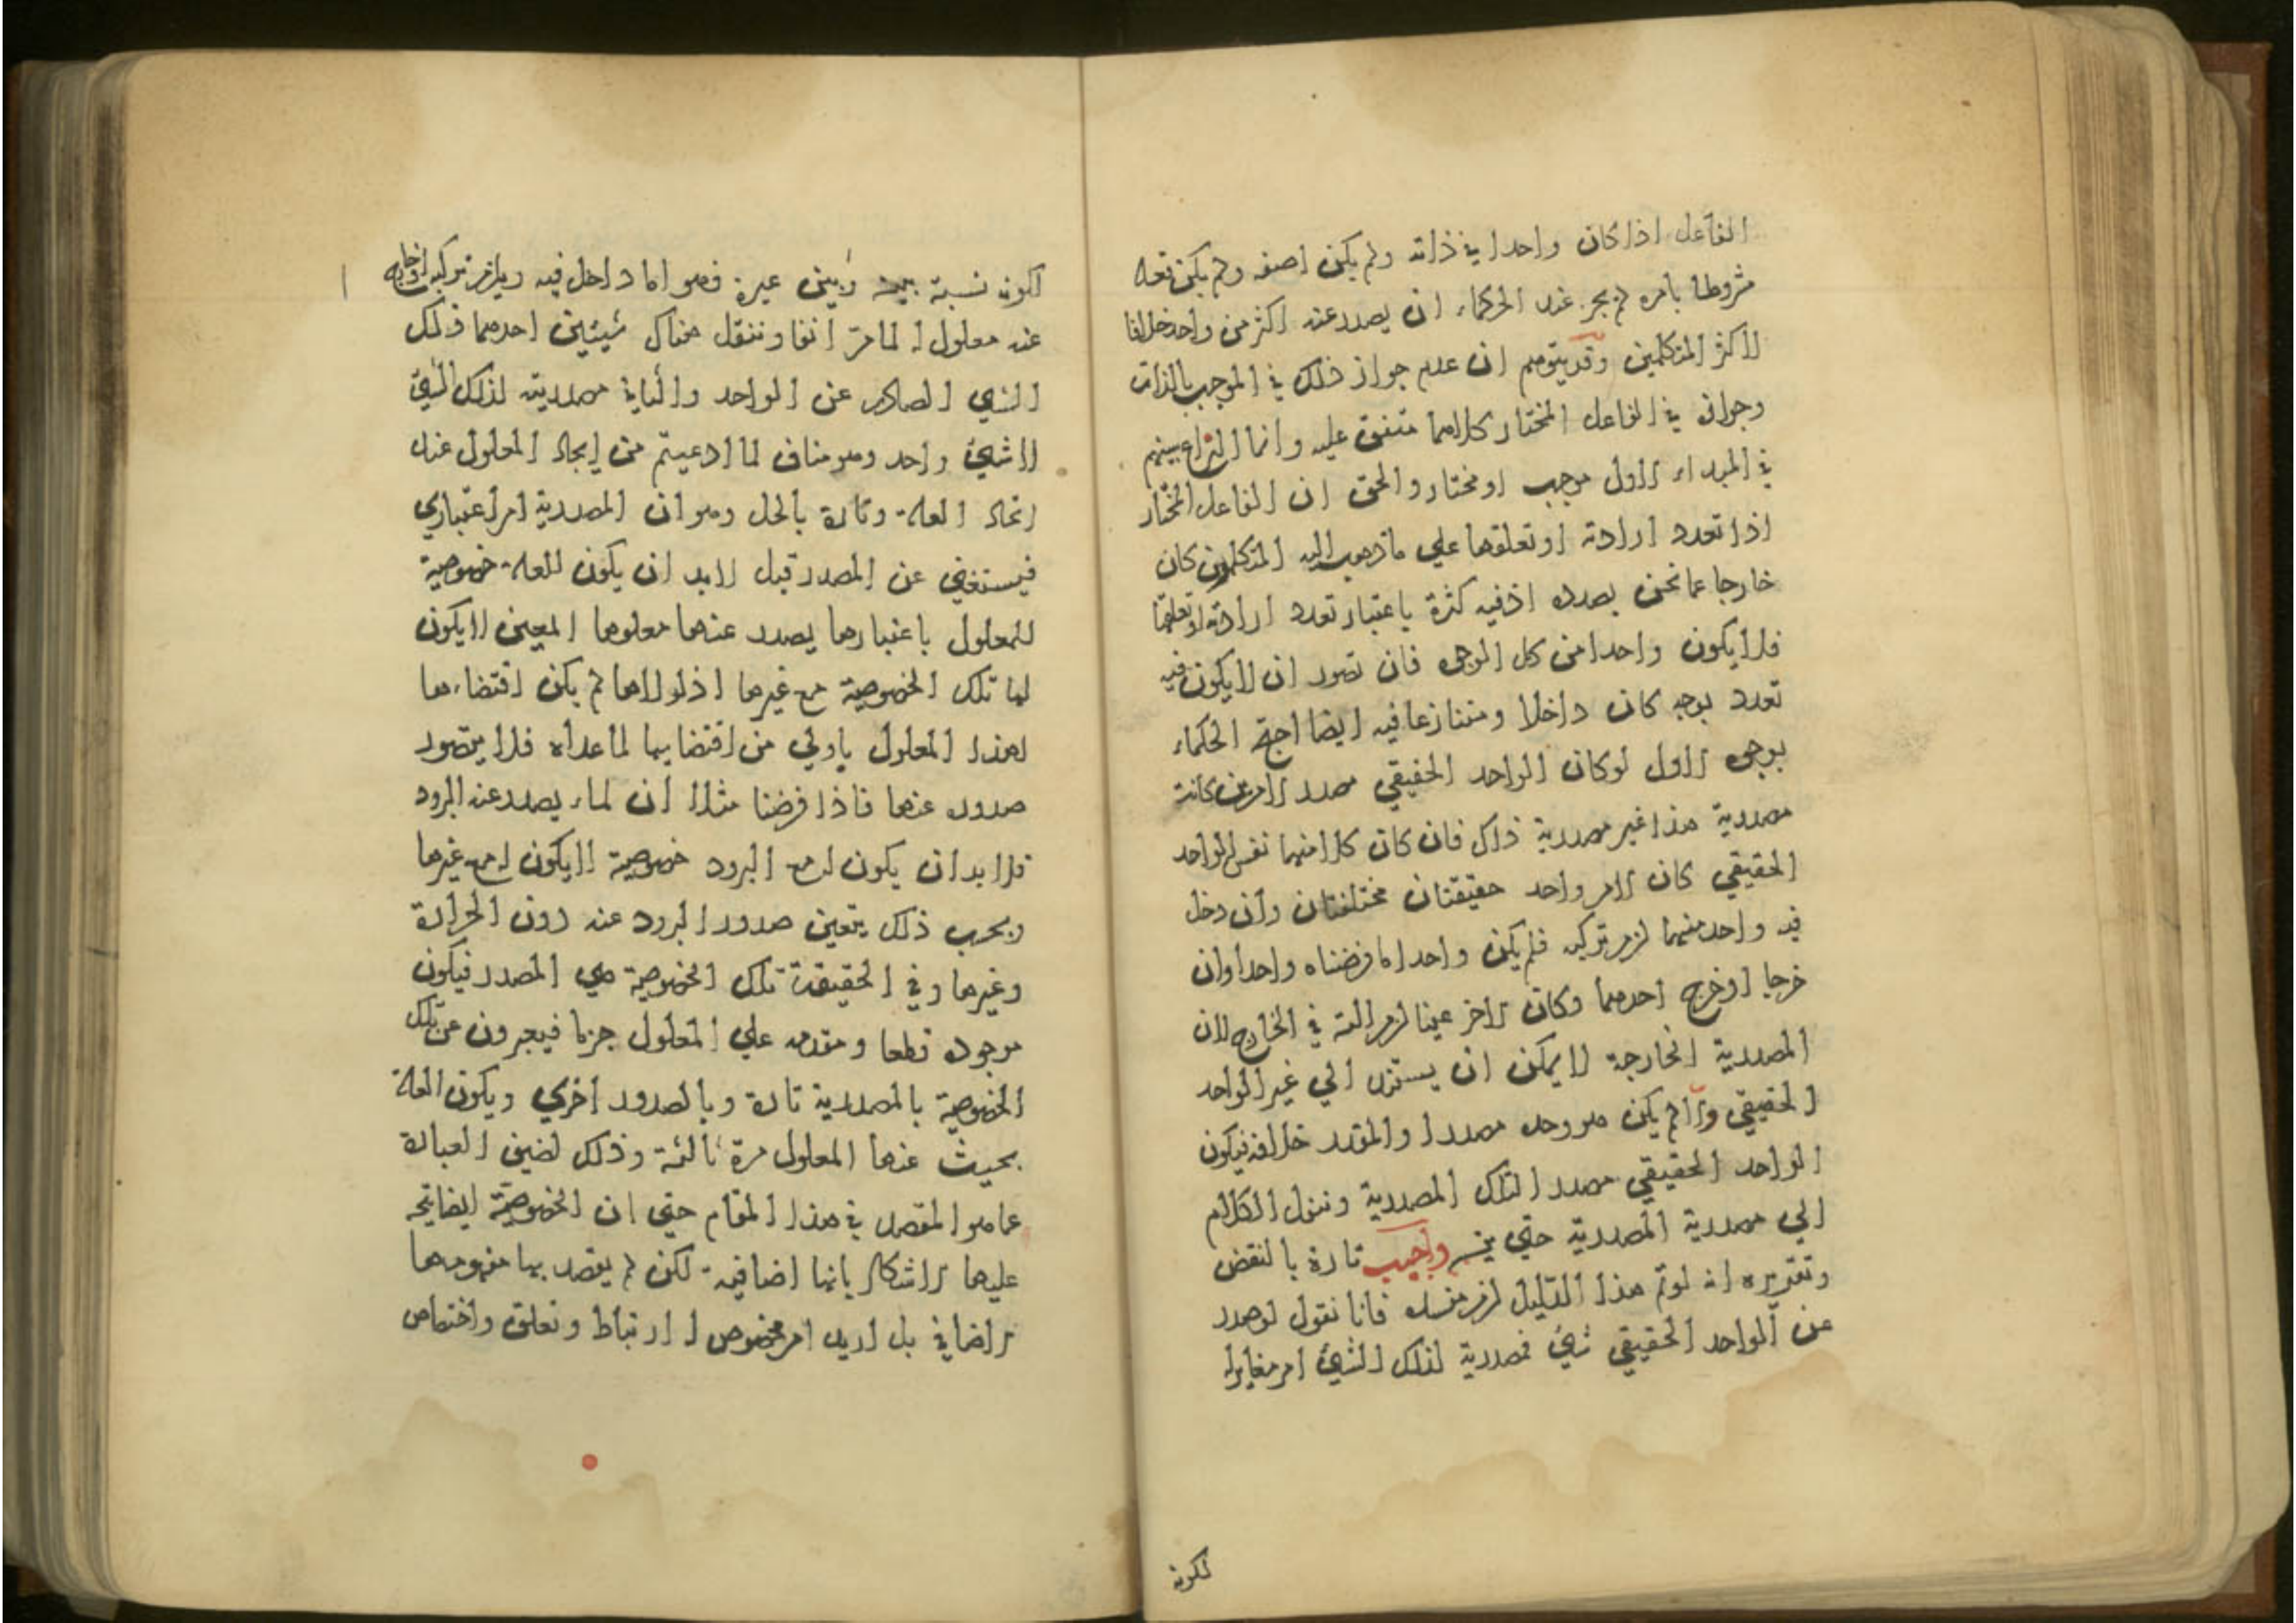 الفاعل اذا كان واحدا في ذاته ولم يكن له صفه ولم يكن فعله
مشروطا بامره لم يجز عند الحكماء ان يصدر عنه اكثر من واحد خلافا
لاكثر المتكلمين وقد يتوهم ان عدم جواز ذلك في الموجب بالذات
وجوازه في الفاعل المختار كلاهما متفق عليه وانما النزاع بينهم
في المبداء الاول موجب او مختار والحق ان الفاعل المختار
اذا تعدد ارادته او تعلقها علي ما ذهب اليه المتكلمون كان
خارجا عما نحن بصدده اذ فيه كثرة باعتبار تعدد ارادته او تعلقها
فلا يكون واحدا من كل الوجوه فان تصور ان لا يكون فيه
تعدد بوجه كان داخلا ومتنازعا فيه ايضا احتج الحكماء
بوجوه الاول لو كان الواحد الحقيقي مصدر الامرين كانت
مصدرية هذا غير مصدرية ذاك فان كان كلا منهما نفس الواحد
الحقيقي كان لامر واحد حقيقتان مختلفتان وان دخل
فيه واحد منهما لزم تركبه فلم يكن واحدا ما فرضناه واحدا وان
خرجا او خرج احدهما وكان الاخر عينا لزم في الخارج لان
المصدرية الخارجة لا يمكن ان يستند الي غير الواحد
الحقيقي والا لم يكن هو وحده مصدرا والمقدر خلافه فيكون
الواحد الحقيقي مصدرا لتلك المصدرية وننقل الكلام
الي مصدرية المصدرية حتي يتس واجيب تارة بالنقض
وتقريره انه لو تم هذا الدليل لزم منه فانا نقول لو صدر
عن الواحد الحقيقي شيء فمصدرية لذلك الشيء امر مغاير له
لكونه
لكونه نسبة بينه وبين غيره فهو اما داخل فيه ويلزم تركبه او خارج
عنه معلول له لما مرّ انفا وننقل هناك شيئين احدهما ذلك
الشيء الصادر عن الواحد والثاني مصدرية لذلك الشيء
لا شيء واحد وهو مناف لما ادعيتم من ايجاد المعلول عند
اتحاد العلة وتارة بالحل وهو ان المصدرية امر اعتباري
فيستغني عن المصدر قيل لا بد ان يكون للعلة خصوصية
للمعلول باعتبارها يصدر عنها معلولها المعين لا يكون
لها تلك الخصوصية مع غيرها اذ لولاها لم يكن اقتضاءها
لهذا المعلول باولي من اقتضايها لما عداه فلا يتصور
صدوره عنها فاذا فرضنا مثلا ان لماء يصدر عنه البرود
فلا بد ان يكون له مع البرود خصوصية لا يكون له مع غيرها
وبحسب ذلك يتعين صدور البرود عنه دون الحرارة
وغيرها وفي الحقيقة تلك الخصوصية هي المصدر فيكون
موجوده قطعا ومتقدمه علي المعلول جزما فيعبرون عن تلك
الخصوصية بالمصدرية تارة وبالصدور اخري ويكون العلة
بحيث عنها المعلول مرة ثالثة وذلك لضيق العبارة
عما هو المقصد في هذا المقام حتي ان الخصوصية ايضا يتجه
عليها الاشكال بانها اضافية لكن لم يقصد بها مفهومها
الاضافي بل اريد امر مخصوص له ارتباط وتعلق واختصاص